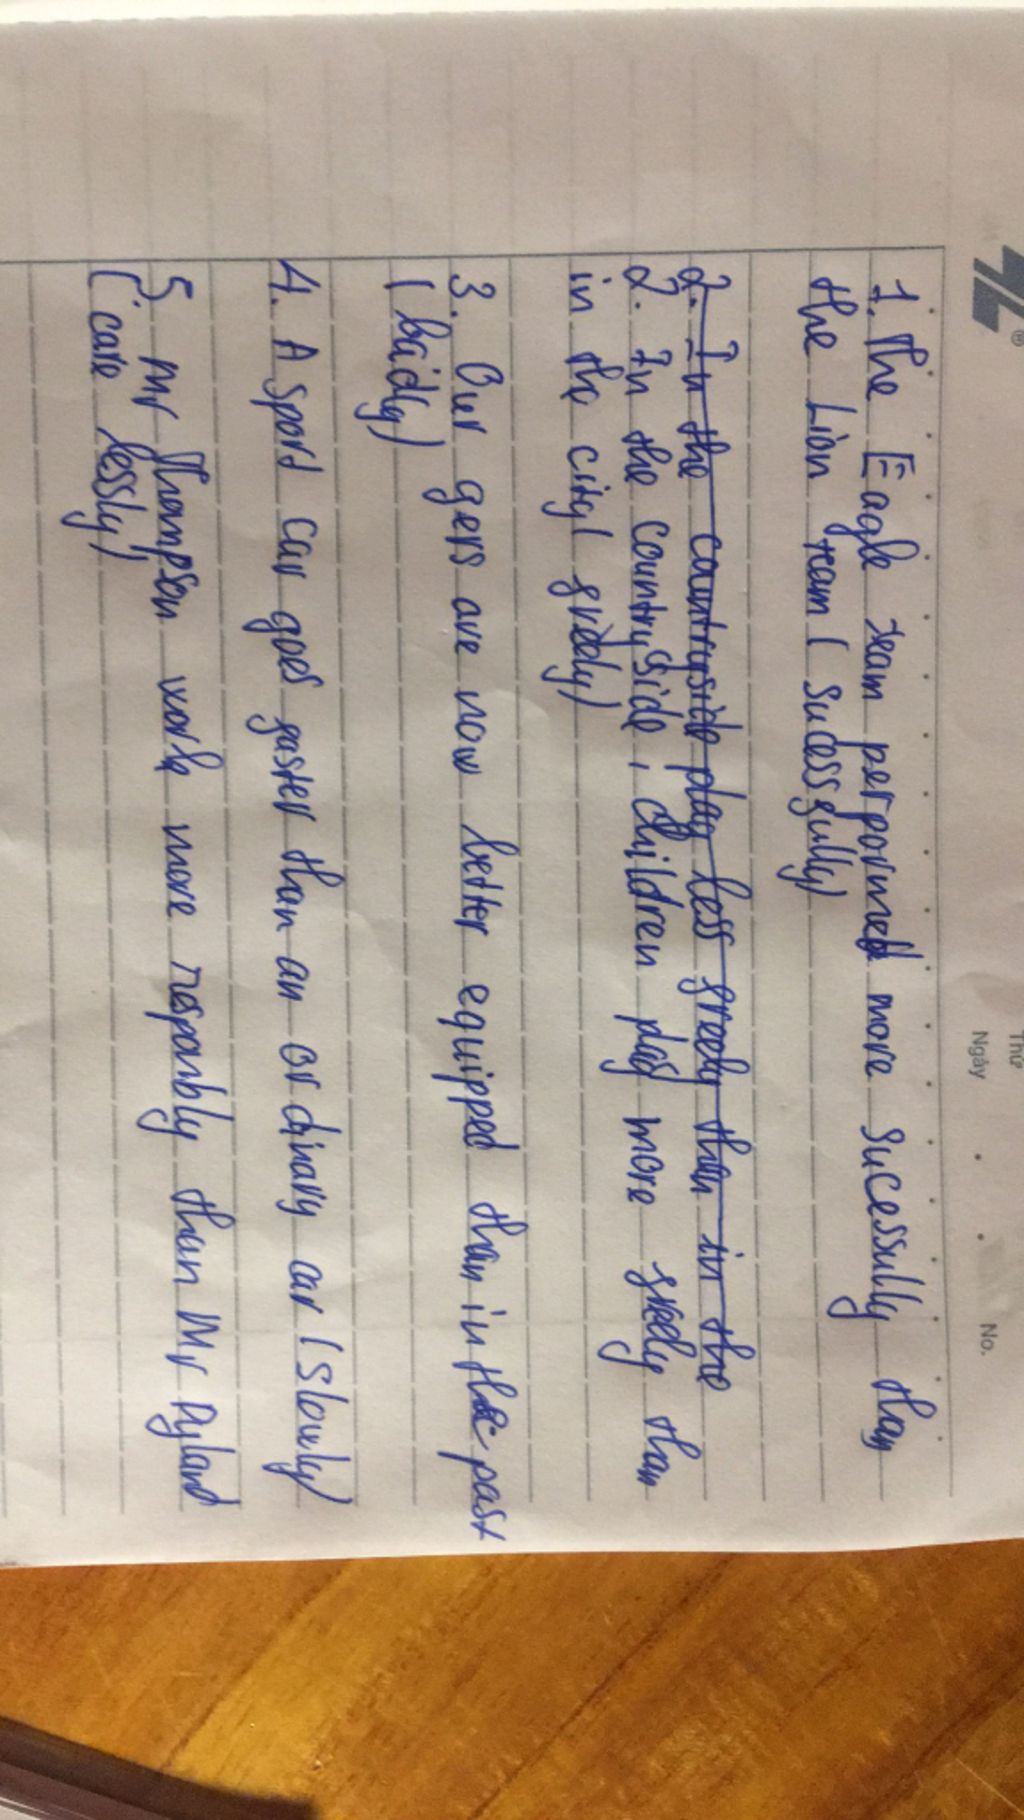 Thứ
Ngày
No.
1. The Eagle team performed more sucessully than
the Lion team ( sucessfully)
2. In the countryside play less freely than in the
2. In the countryside, children play more freely than
in the city ( freely)
3. Our gers are now better equipped than in the past
( badly)
4. A sport car goes faster than an ordinary car ( slowly)
5. Mr Thompson work more responbly than Mr Dyland
( care lessly)